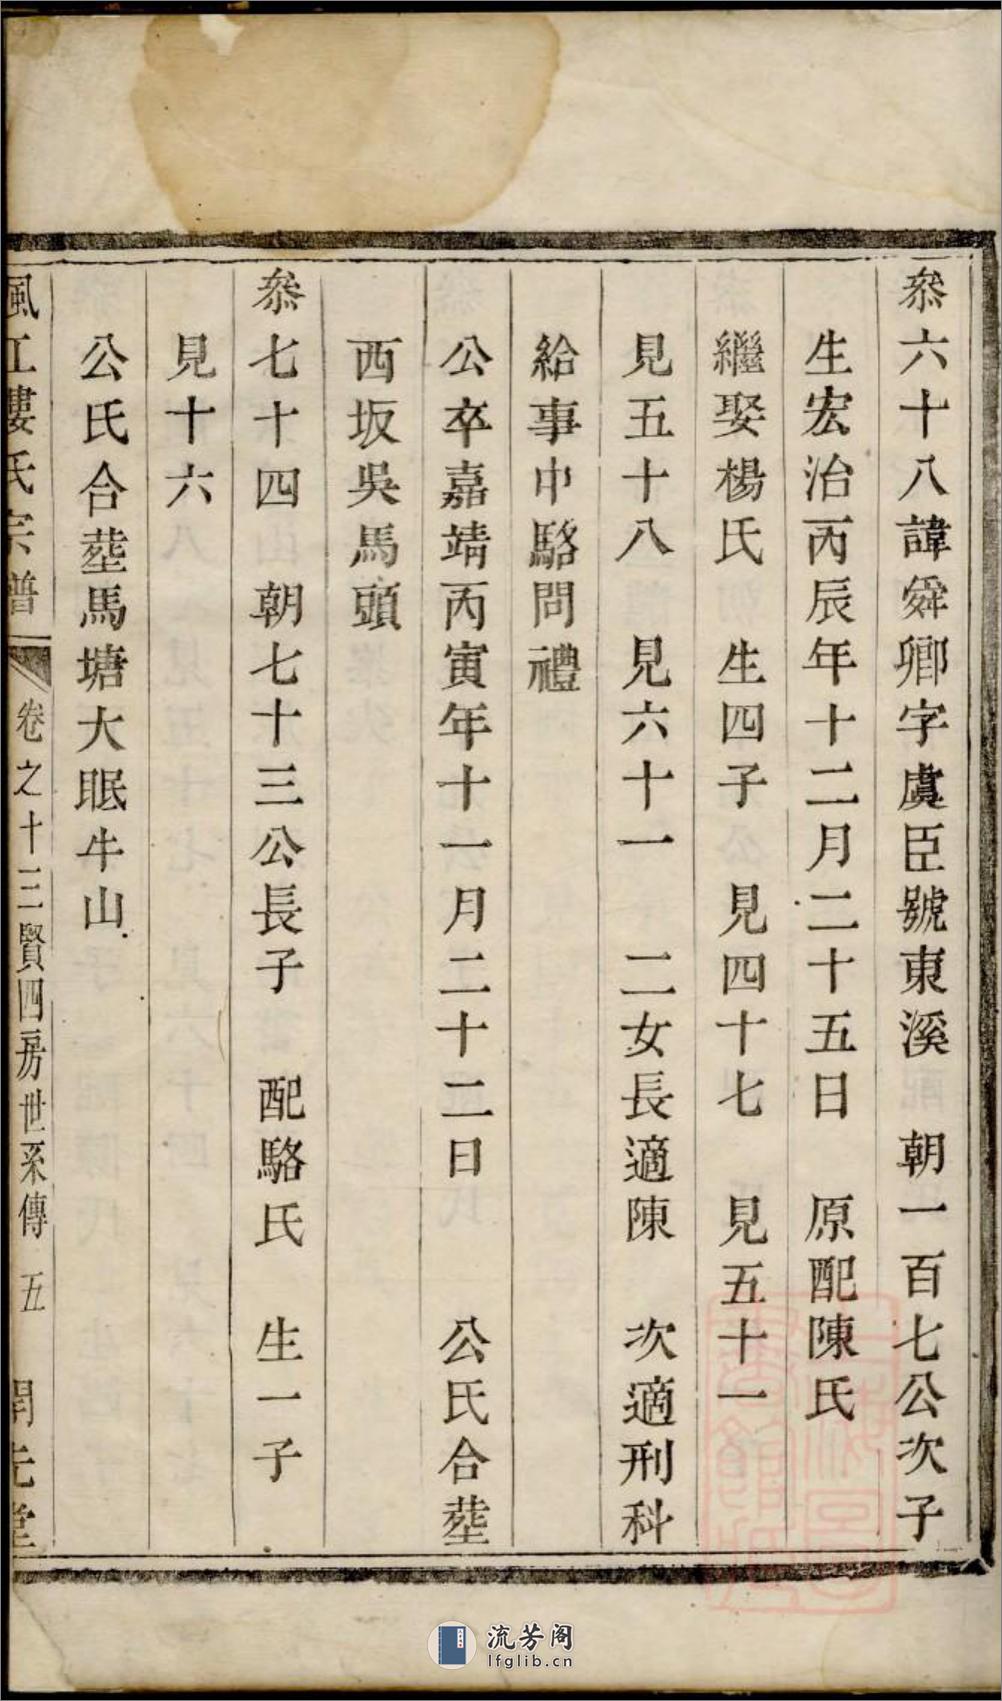 叅六十八諱舜卿字虞臣號東溪　朝一百七公次子
生宏治丙辰年十二月二十五日　原配陳氏
繼娶楊氏　生四子　見四十七　見五十一
見五十八　見六十一　二女長適陳　次適刑科
給事中駱問禮
公卒嘉靖丙寅年十一月二十二日　公氏合塟
西坂吳馬頭
叅七十四　朝七十三公長子　配駱氏　生一子
見十六
公氏合塟馬塘大眠牛山
風江婁氏宗譜　卷之十三賢四房世系傳　五　開先堂
流芳阁
lfglib.cn